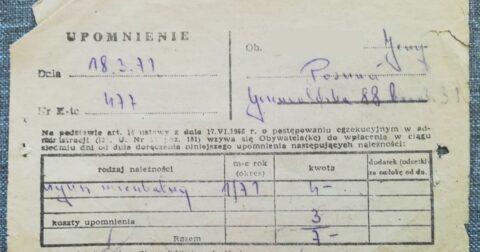 UPOMNIENIE
Ob. Jerzy
Dnia 18.3.71
Poznań
Nr K-to 477
88
31
Na podstawie art. ustawy z dnia 17.VI.1966 r. o postępowaniu egzekucyjnym w ad-
ministracji (Dz. U. Nr poz. 151) wzywa się Obywatela(kę) do wpłacenia w ciągu
siedmiu dni od dnia doręczenia niniejszego upomnienia następujących należności:
rodzaj należności
m-c rok (okres)
kwota
dodatek (odsetki) za zwłokę od dn.
1/71 4-
koszty upomnienia 3
Razem 7-